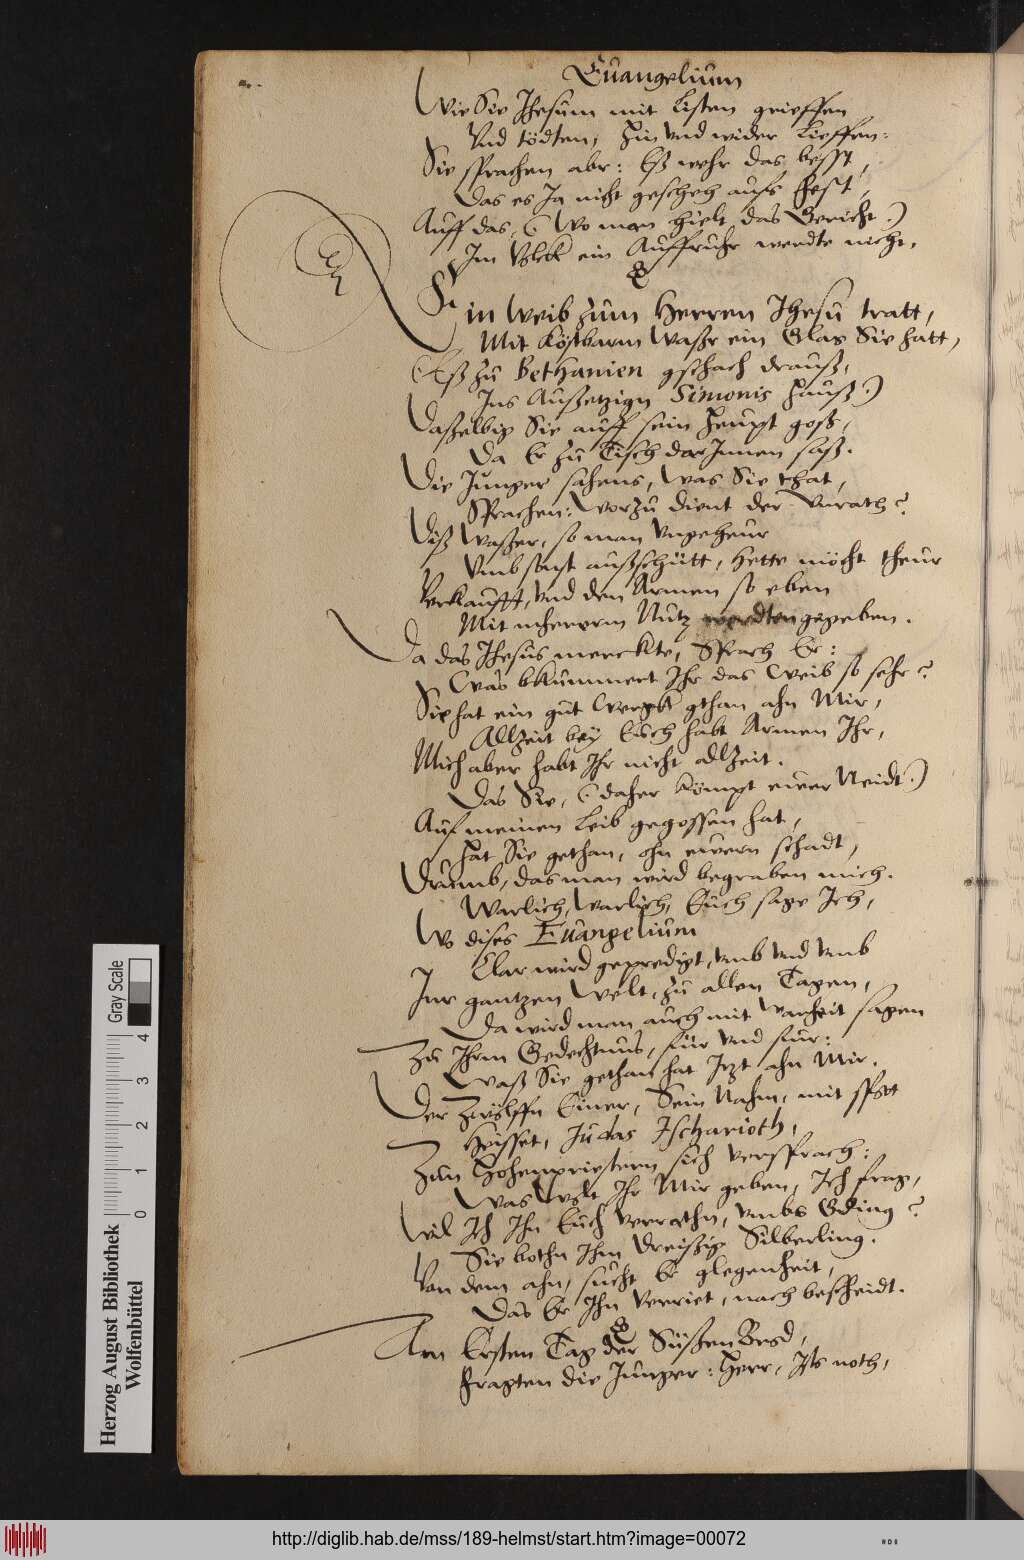 Euangelium
Wie Sie Jhesum mit Listen grieffen
Vnd tödten, hin vnd wider lieffen:
Sie sprachen abr: Eß wehr das besst,
Das es Ja nicht geschech aufs Fest,
Auff das, (Wo man hielt das Gericht.)
Im Volck ein Auffruhr werdte nicht.
Ein Weib zum Herren Jhesu tratt,
Mit Köstbarm Waßr ein Glas Sie hatt,
(Eß zu Bethanien gschach drauß,
Ins Außetzign Simonis Hauß.)
Daßelbig Sie auff sein Heupt goß,
Da Er zu Tisch darInnen saß.
Die Junger sahens, Was Sie that,
Sprachen: Worzu dient der Vnrath?
Diß Waßer, so man Vngeheur
Vmb sonst außschütt, hette möcht theur
Verkaufft, Vnd den Armen so eben
Mit mherem Nutz werdten gegeben.
Da das Jhesus merckte, Sprach Er:
Was bkummert Ihr das Weib so sehr?
Sie hat ein gut Werck gthan ahn Mir,
Allzeit bey Euch habt Armen Ihr,
Mich aber habt Ihr nicht allzeit.
Das Sie, (daher kömpt euer Neidt.)
Auf meinen Leib gegossen hat,
Hat Sie gethan, ohn euern schadt,
Drumb, das man wird begraben mich.
Warlich, Warlich, Euch sage Ich,
Wo dises Euangelium
Clar wird gepredigt, vmb vnd vmb
Inr gantzen Welt, zu allen Tagen,
Da wird man auch mit Warheit sagen
Zu Ihrm Gedechtnus, für vnd für:
Waß Sie gethan hat Jtzt ahn Mir.
Der Zwölffn Einer, Sein Nahm, mit spott
Heisset, Judas Ischarioth,
Zun Hohenpriestern sich versprach:
Was Wolt Ihr Mir geben, Ich frag,
Wil Ich Ihn Euch verrathn, vmbs Gding?
Sie bothn Ihm Dreißig Silberling.
Von dem ahn, sucht Er glegenheit,
Das Er Ihn Verriet, nach bescheidt.
Am Ersten Tag der Süßen Brod,
Fragten die Junger: Herr, Ists noth,
Gray Scale
0 1 2 3 4
Herzog August Bibliothek
Wolfenbüttel
http://diglib.hab.de/mss/189-helmst/start.htm?image=00072